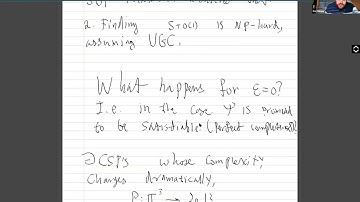 2. Finding S(OCI) is NP-hard,
assuming UGC.
What happens for ε=0?
I.e. in the case Ψ is promised
to be satisfiable (Perfect completeness)
∃ CSPs whose complexity
changes dramatically,